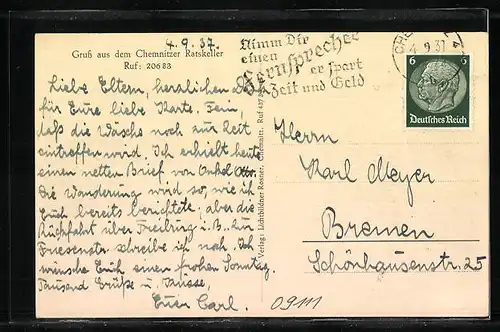 4. 9. 37.
Gruß aus dem Chemnitzer Ratskeller
Ruf: 20683
Liebe Eltern, herzlichen Dank
für Eure liebe Karte. Fein,
daß die Wäsche noch zur Zeit
eintreffen wird. Ich erhielt heute
einen netten Brief von Onkel Otto.
Die Wanderung wird so, wie ich
Euch bereits berichtete, aber die
Rückfahrt über Freiburg i. B. Zur
Friesenstr. schreibe ich noch. Ich
wünsche Euch einen frohen Sonntag.
Tausend Grüße u. Küsse,
Euer Carl.
Verlag: Lichtbildner Rosner, Chemnitz. Ruf
Nimm Dir
einen
Fernsprecher
er spart
Zeit und Geld
4. 9. 37
6 6
Deutsches Reich
Herrn
Karl Meyer
Bremen
Schönhausenstr. 25
09111